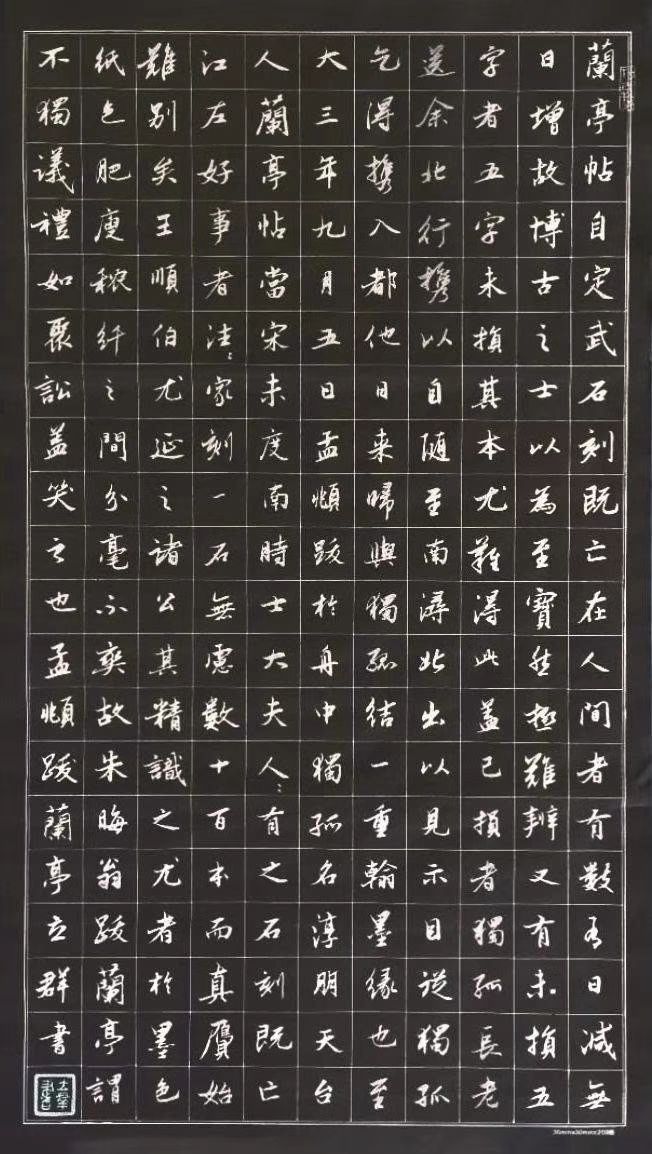 蘭亭帖自定武石刻既亡在人間者有數有日減無
日增故博古之士以為至寶然極難辨又有未損五
字者五字未損其本尤難得此蓋已損者獨孤長老
送余北行携以自隨至南潯北出以見示因從獨孤
乞得携入都他日来歸與獨孤結一重翰墨緣也至
大三年九月五日孟頫跋於舟中獨孤名淳朋天台
人蘭亭帖當宋未度南時士大夫人々有之石刻既亡
江左好事者往々家刻一石無慮數十百本而真贋始
難別矣王順伯尤延之諸公其精識之尤者於墨色
紙色肥瘦穠纤之間分毫不爽故朱晦翁跋蘭亭謂
不獨議禮如聚訟盖笑之也孟頫跋蘭亭立群書